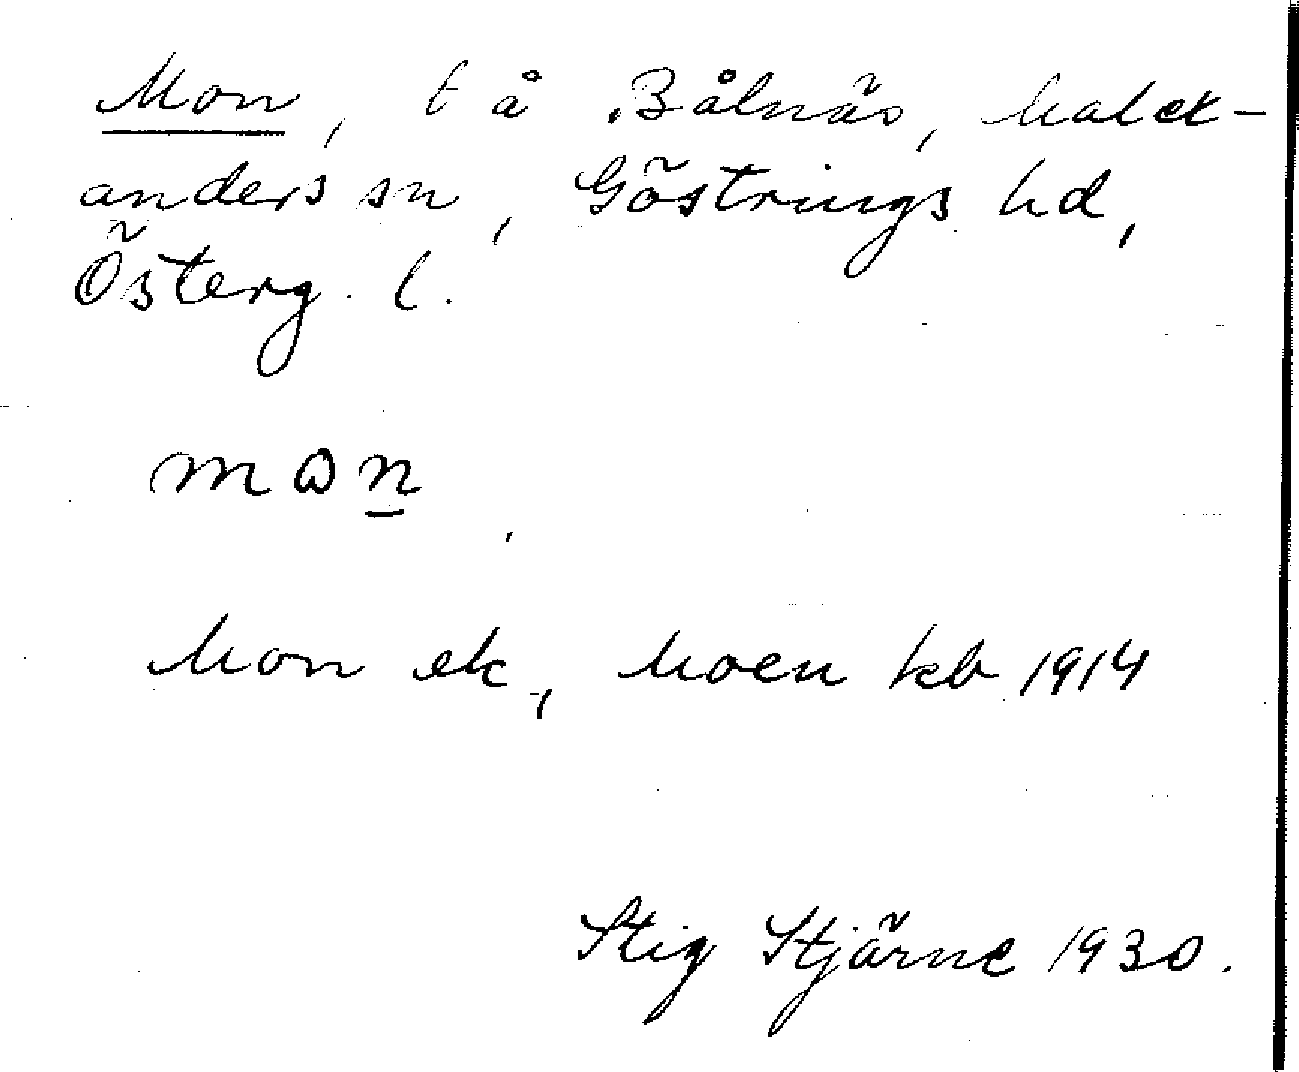 Mon, t å Bålnäs, Malex-
anders sn, Göstrings hd,
Österg. l.
mωn
Mon ek, Moen kb 1914
Stig Stjärne 1930.